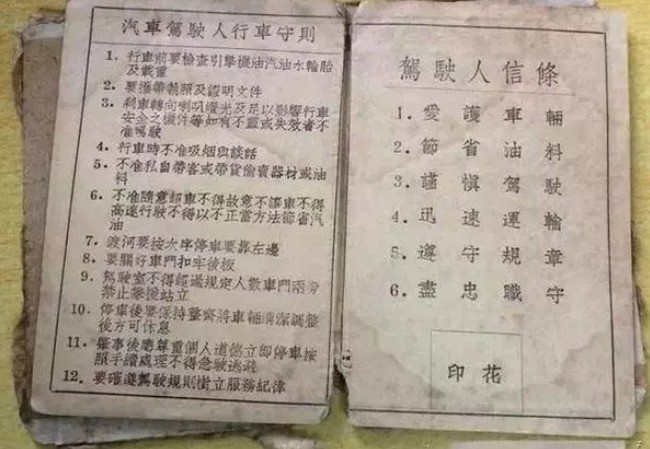 汽車駕駛人行車守則
1. 行車前要檢查引擎機油汽油水輪胎
及載重
2. 要攜帶執照及證明文件
3. 剎車轉向喇叭燈光及足以影響行車
安全之機件等如有不靈或失效者不
准駕駛
4. 行車時不准吸烟與談話
5. 不准私自帶客或帶貨偷賣器材或油
料
6. 不准隨意超車不得故意不讓車不得
高速行駛不得以不正當方法節省汽
油
7. 渡河要按次序停車要靠左邊
8. 要關好車門扣牢後板
9. 駕駛室不得超過規定人數車門兩旁
禁止攀援站立
10. 停車後要保持整齊將車輛清潔調整
後方可休息
11. 肇事後應尊重個人道德立即停車按
照手續處理不得急駛逃避
12. 要確遵駕駛規則樹立服務紀律
駕駛人信條
1. 愛護車輛
2. 節省油料
3. 謹慎駕駛
4. 迅速運輸
5. 遵守規章
6. 盡忠職守
印花